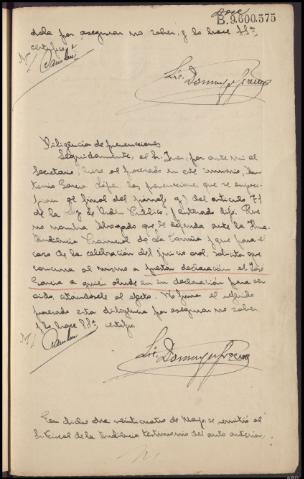 doce
B.9.600.375
dola por asegurar no saber, y lo hace S.Sª
certifico.
Diligencia de prevenciones
Seguidamente, el Sr. Juez, por ante mi el
Secretario, hizo al procesado en este sumario,
García Lifa, las prevenciones que se
por el final del párrafo 9º del artículo 71
de la Ley de Orden Público, y enterado dijo: Que
no nombra Abogado que le defienda ante la
Audiencia Provincial de La Coruña y que para el
caso de la celebración del juicio oral solicita que
concurra al mismo a prestar declaración el José
García a quien alude en su declaración para ser
oido, citandosele al efecto. No firma el referido
procesado esta diligencia por asegurar no saber
y lo hace S.Sª certifico
En dicho dia veinticuatro de Mayo se remitió al
Sr. Fiscal de la Audiencia testimonio del auto anterior.